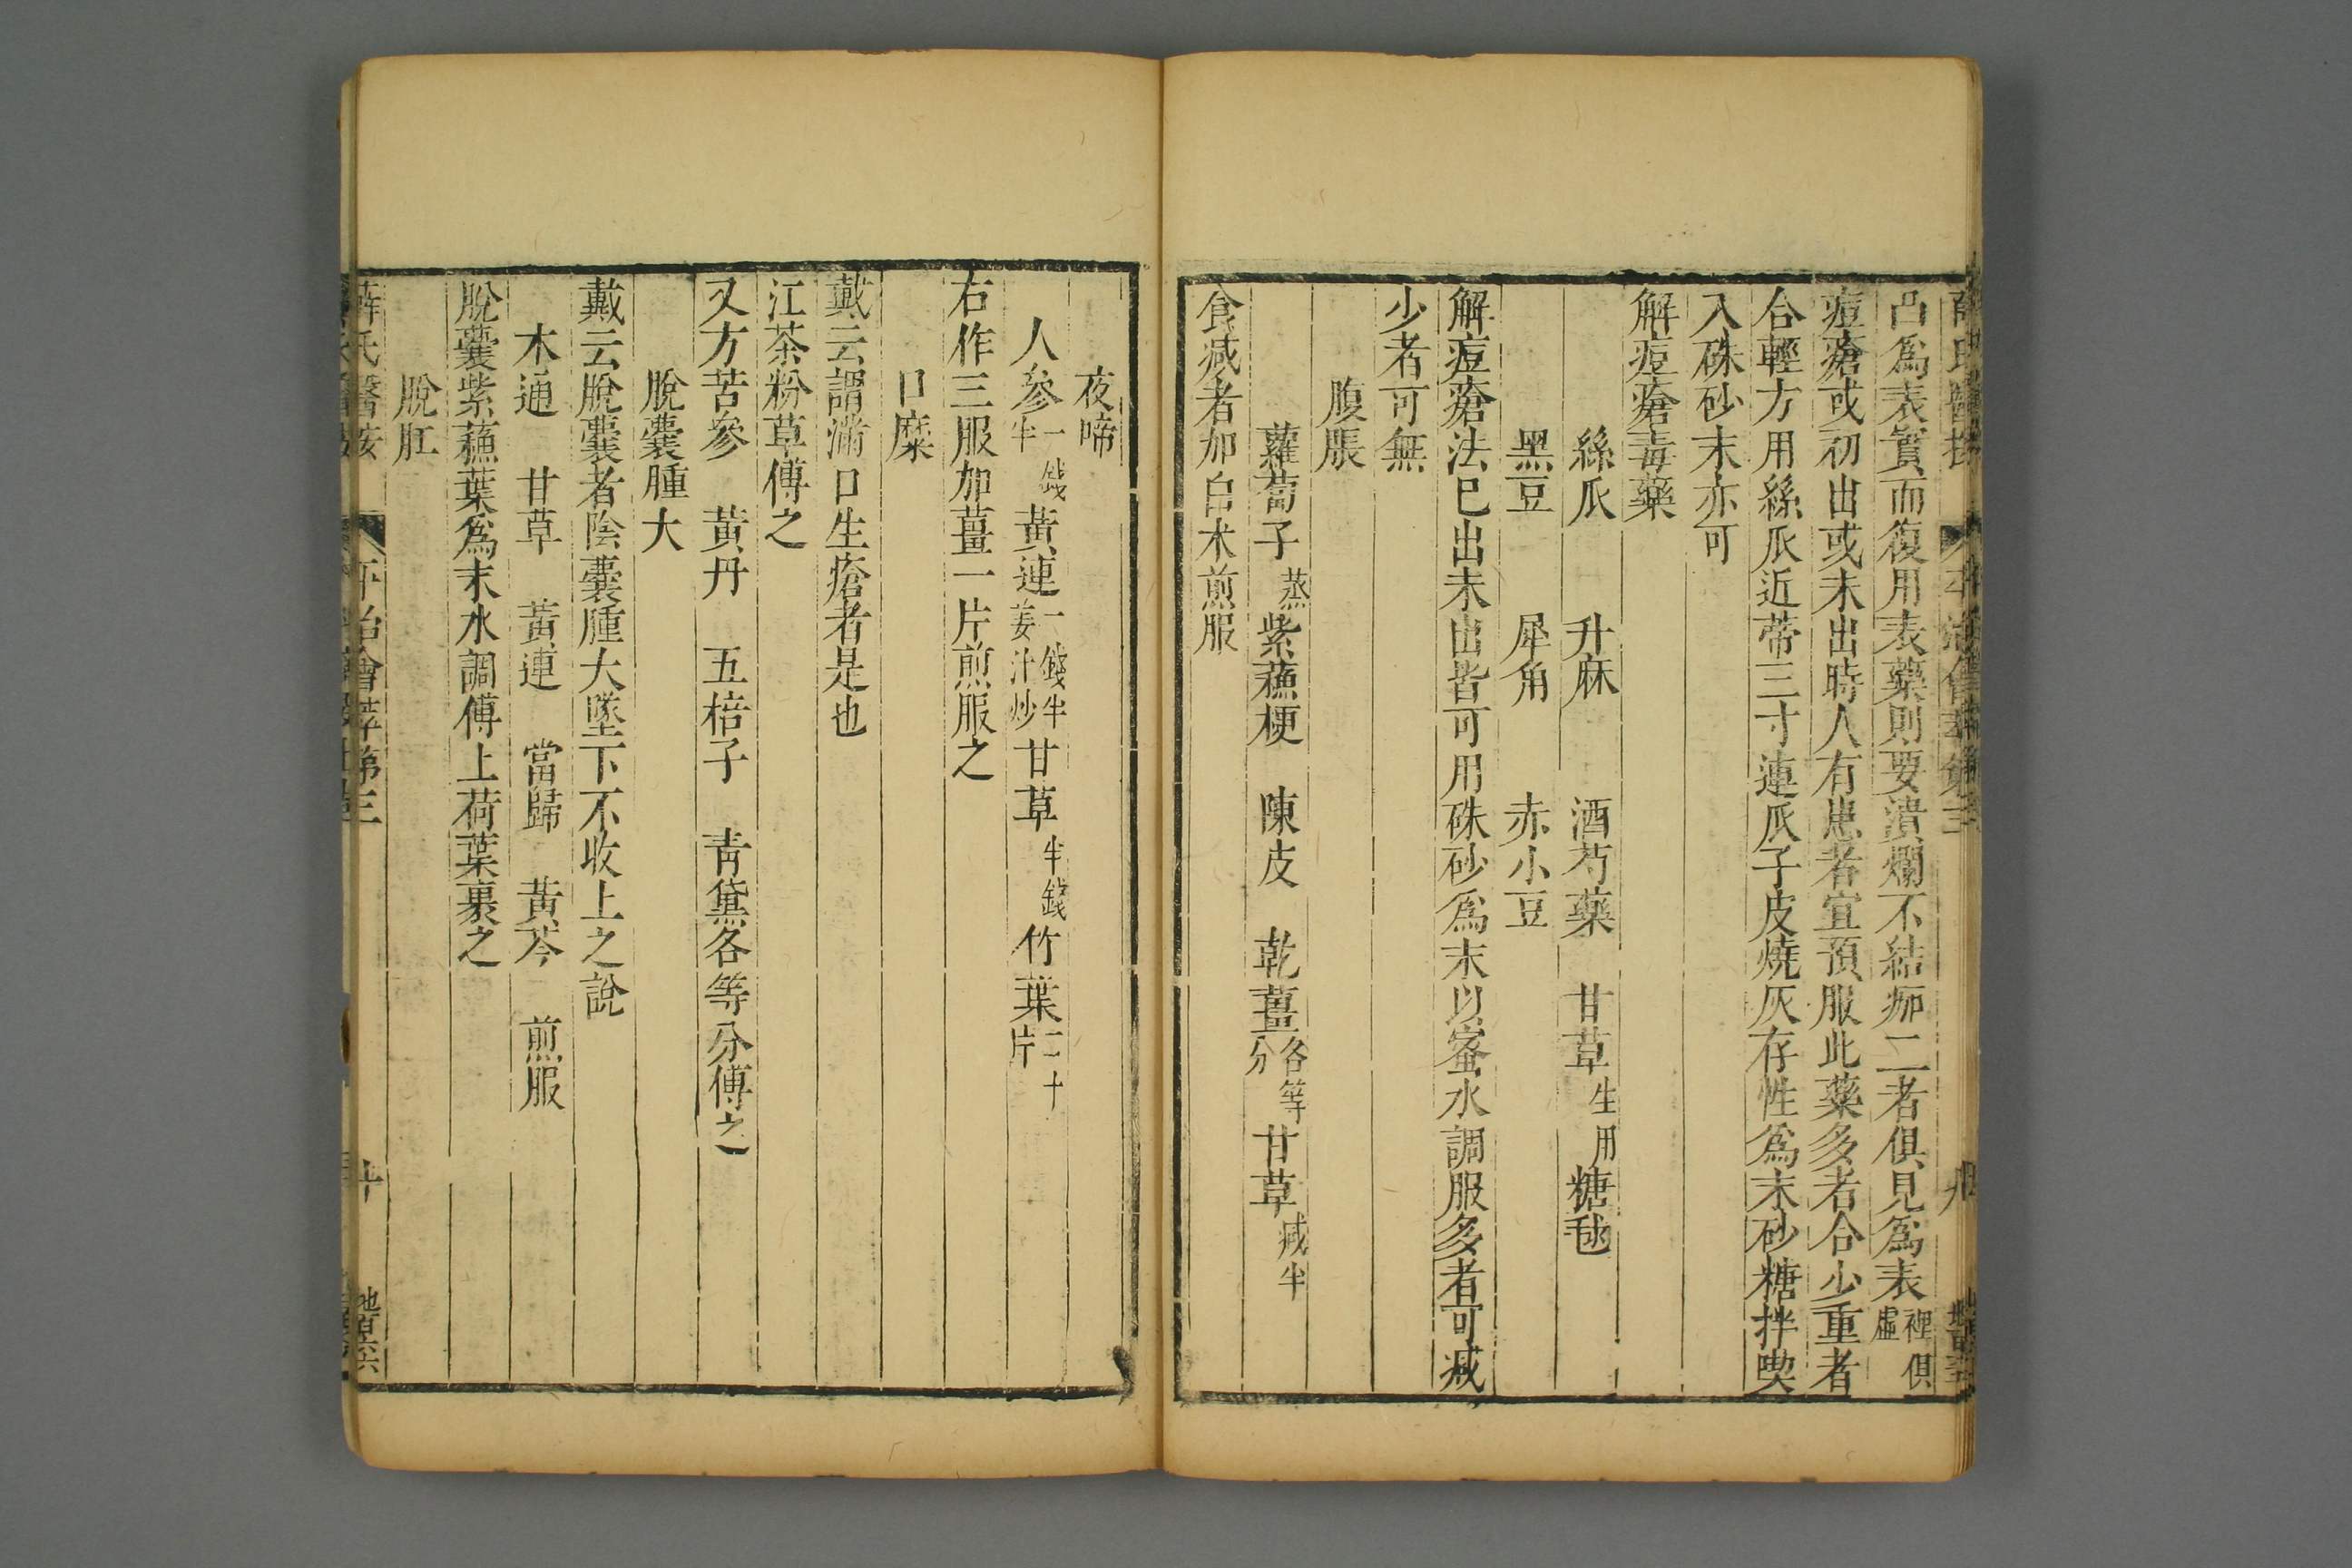 凸爲表實而復用表藥則要潰爛不結痂二者俱見爲表裡俱虛
痘瘡或初出或未出時人有患者宜預服此藥多者合少重者
合輕方用絲瓜近蒂三寸連瓜子皮燒灰存性爲末砂糖拌喫
入硃砂末亦可
解痘瘡毒藥
絲瓜 升麻 酒芍藥 甘草生用 糖毬
黑豆 犀角 赤小豆
解痘瘡法已出未出皆可用硃砂爲末以蜜水調服多者可减
少者可無
腹脹
蘿蔔子蒸 紫蘓梗 陳皮 乾薑各等分 甘草减半
食减者加白术煎服
夜啼
人參一錢半 黃連一錢半姜汁炒 甘草半錢 竹葉二十片
右作三服加薑一片煎服之
口糜
戴云謂滿口生瘡者是也
江茶粉草傅之
又方苦參 黃丹 五棓子 青黛各等分傅之
脫囊腫大
戴云脫囊者陰囊腫大墜下不收上之說
木通 甘草 黃連 當歸 黃芩 煎服
脫囊紫蘓葉爲末水調傅上荷葉裹之
脫肛
薛氏醫按 下治會萃第三 十